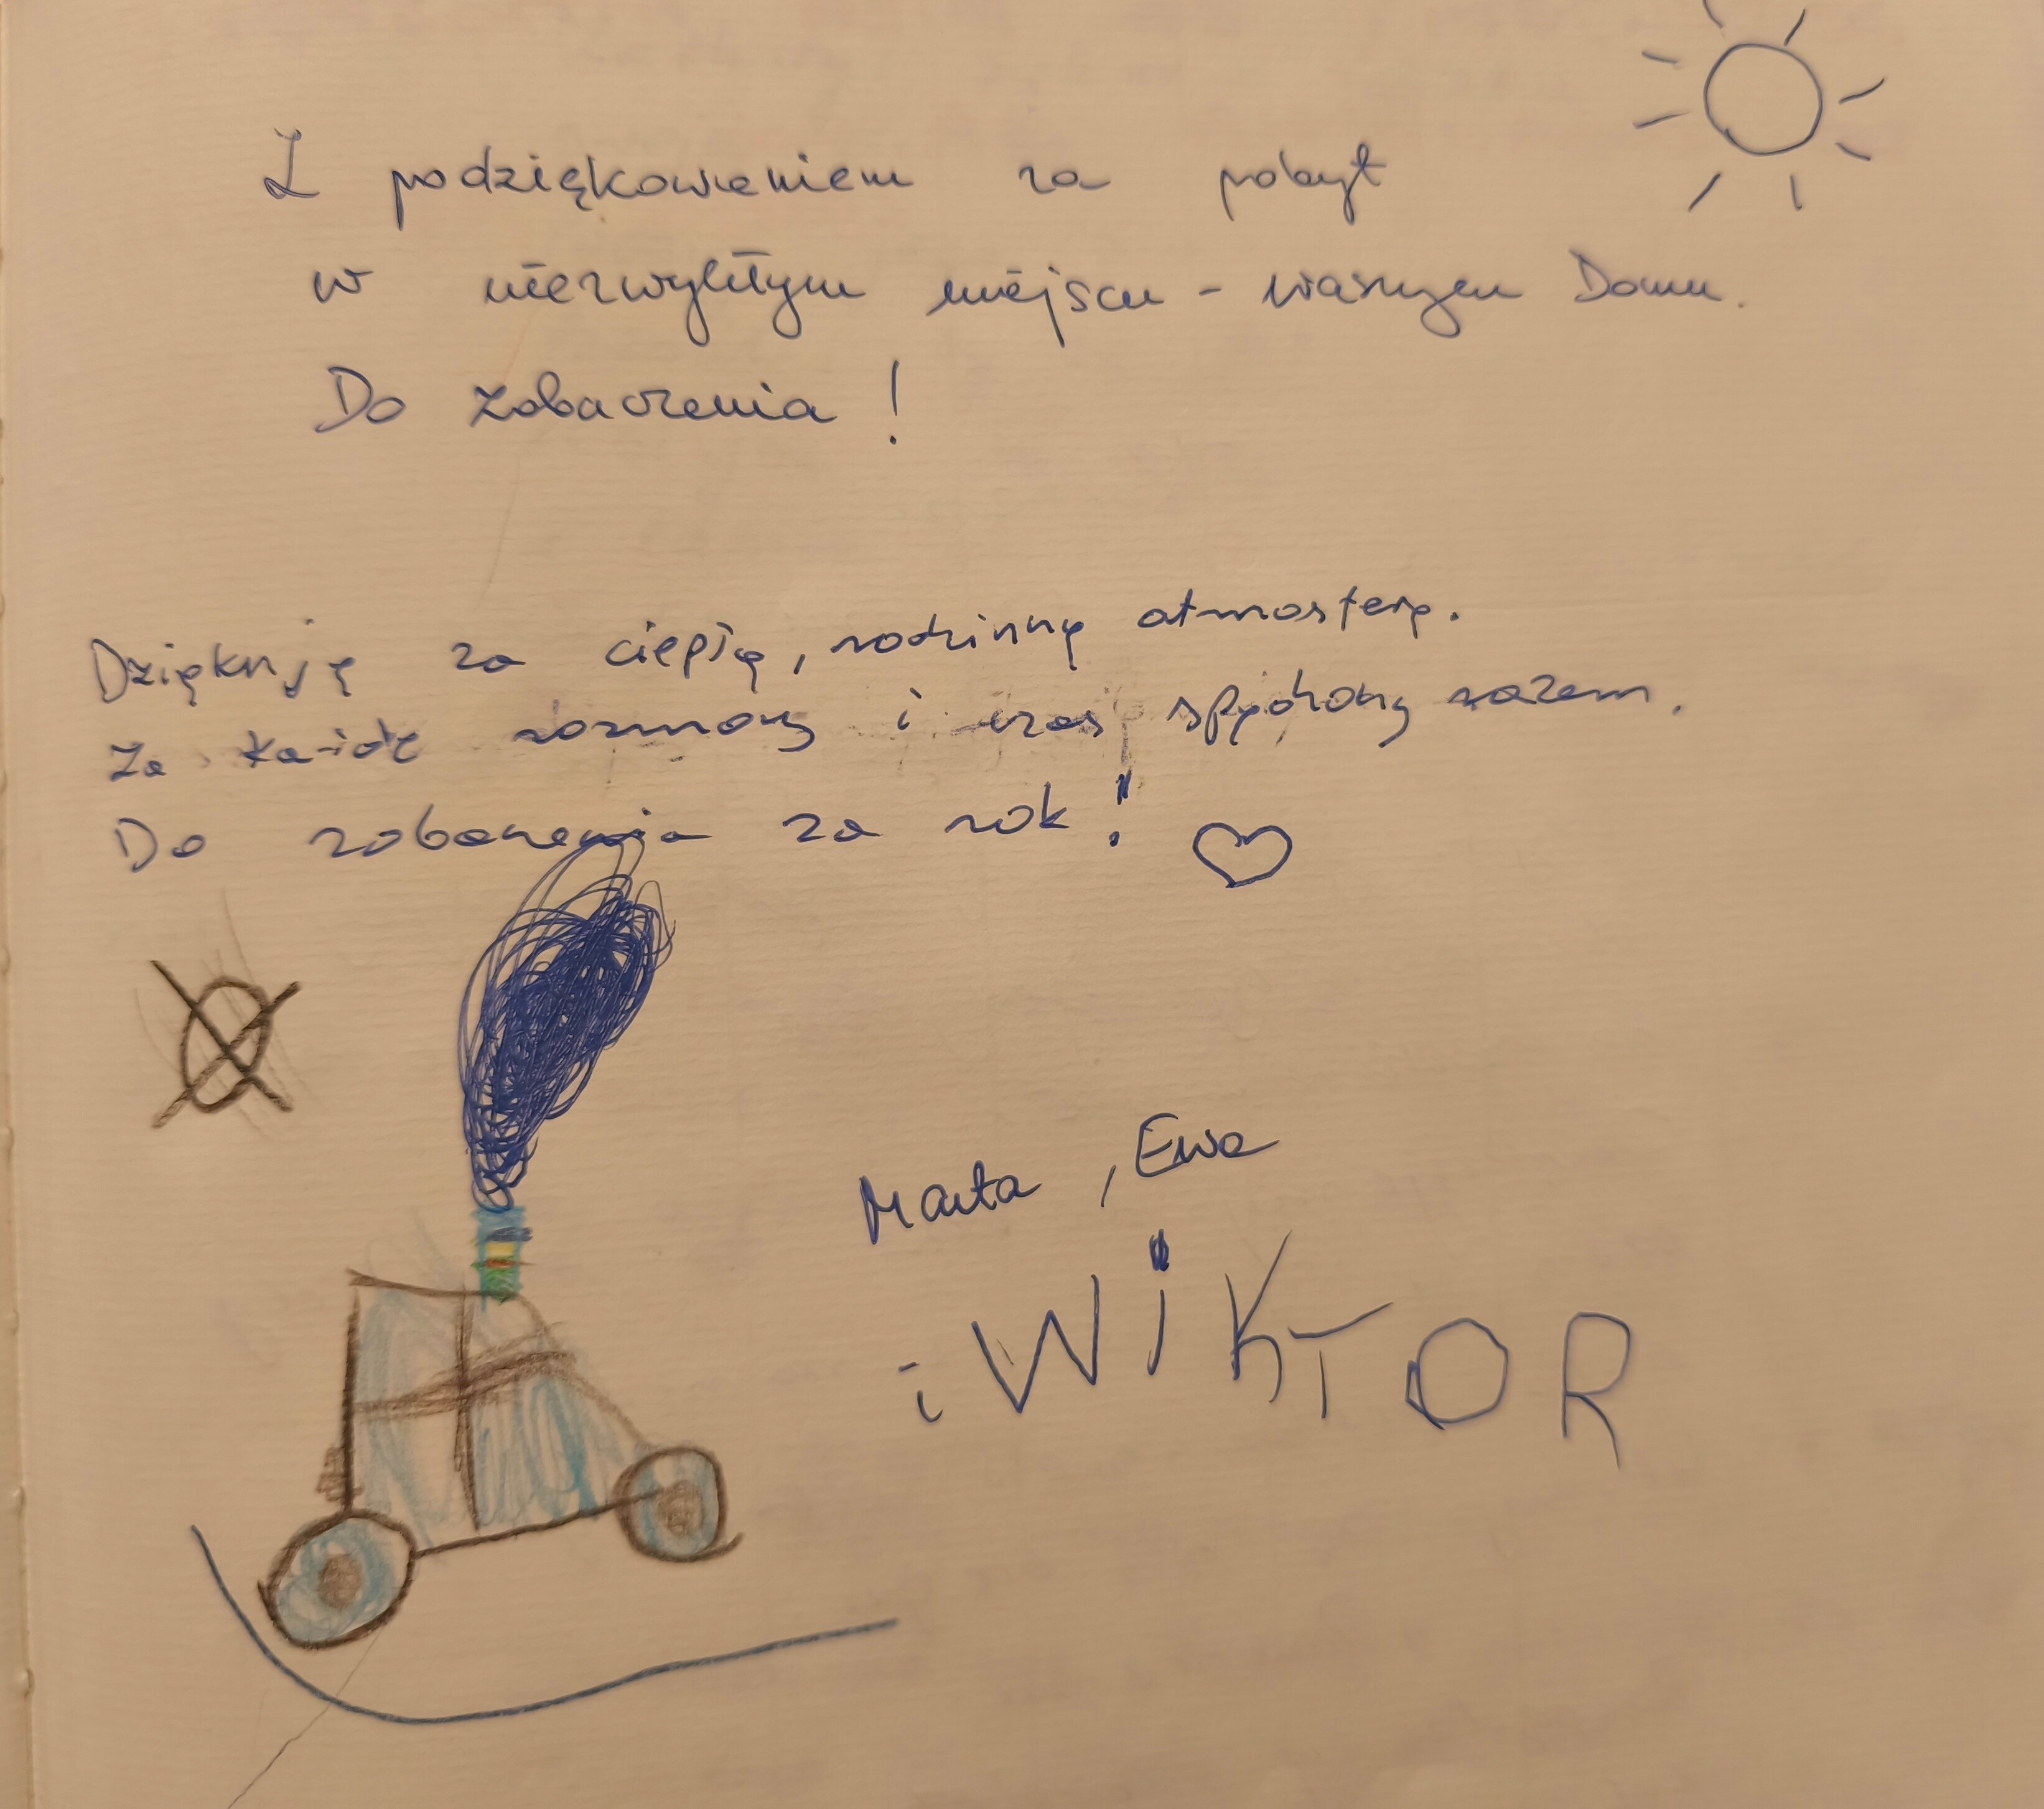 Z podziękowaniem za pobyt
w niezwykłym miejscu - waszym Domu.
Do zobaczenia!
Dziękuję za ciepłą, rodzinną atmosferę.
Za każdą rozmowę i czas spędzony razem.
Do zobaczenia za rok!
Marta, Ewa
i WiKTOR